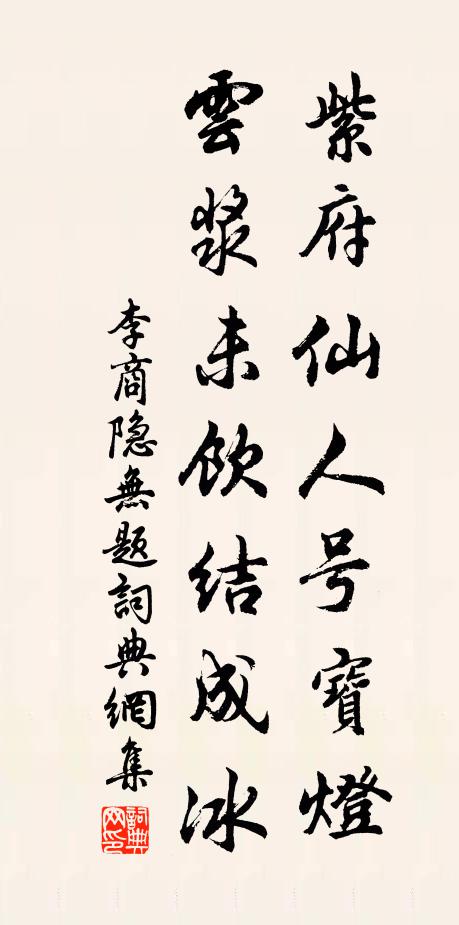 紫府仙人号寶燈
雲漿未飲結成冰
李商隐無题詞典網集
詞典
网印